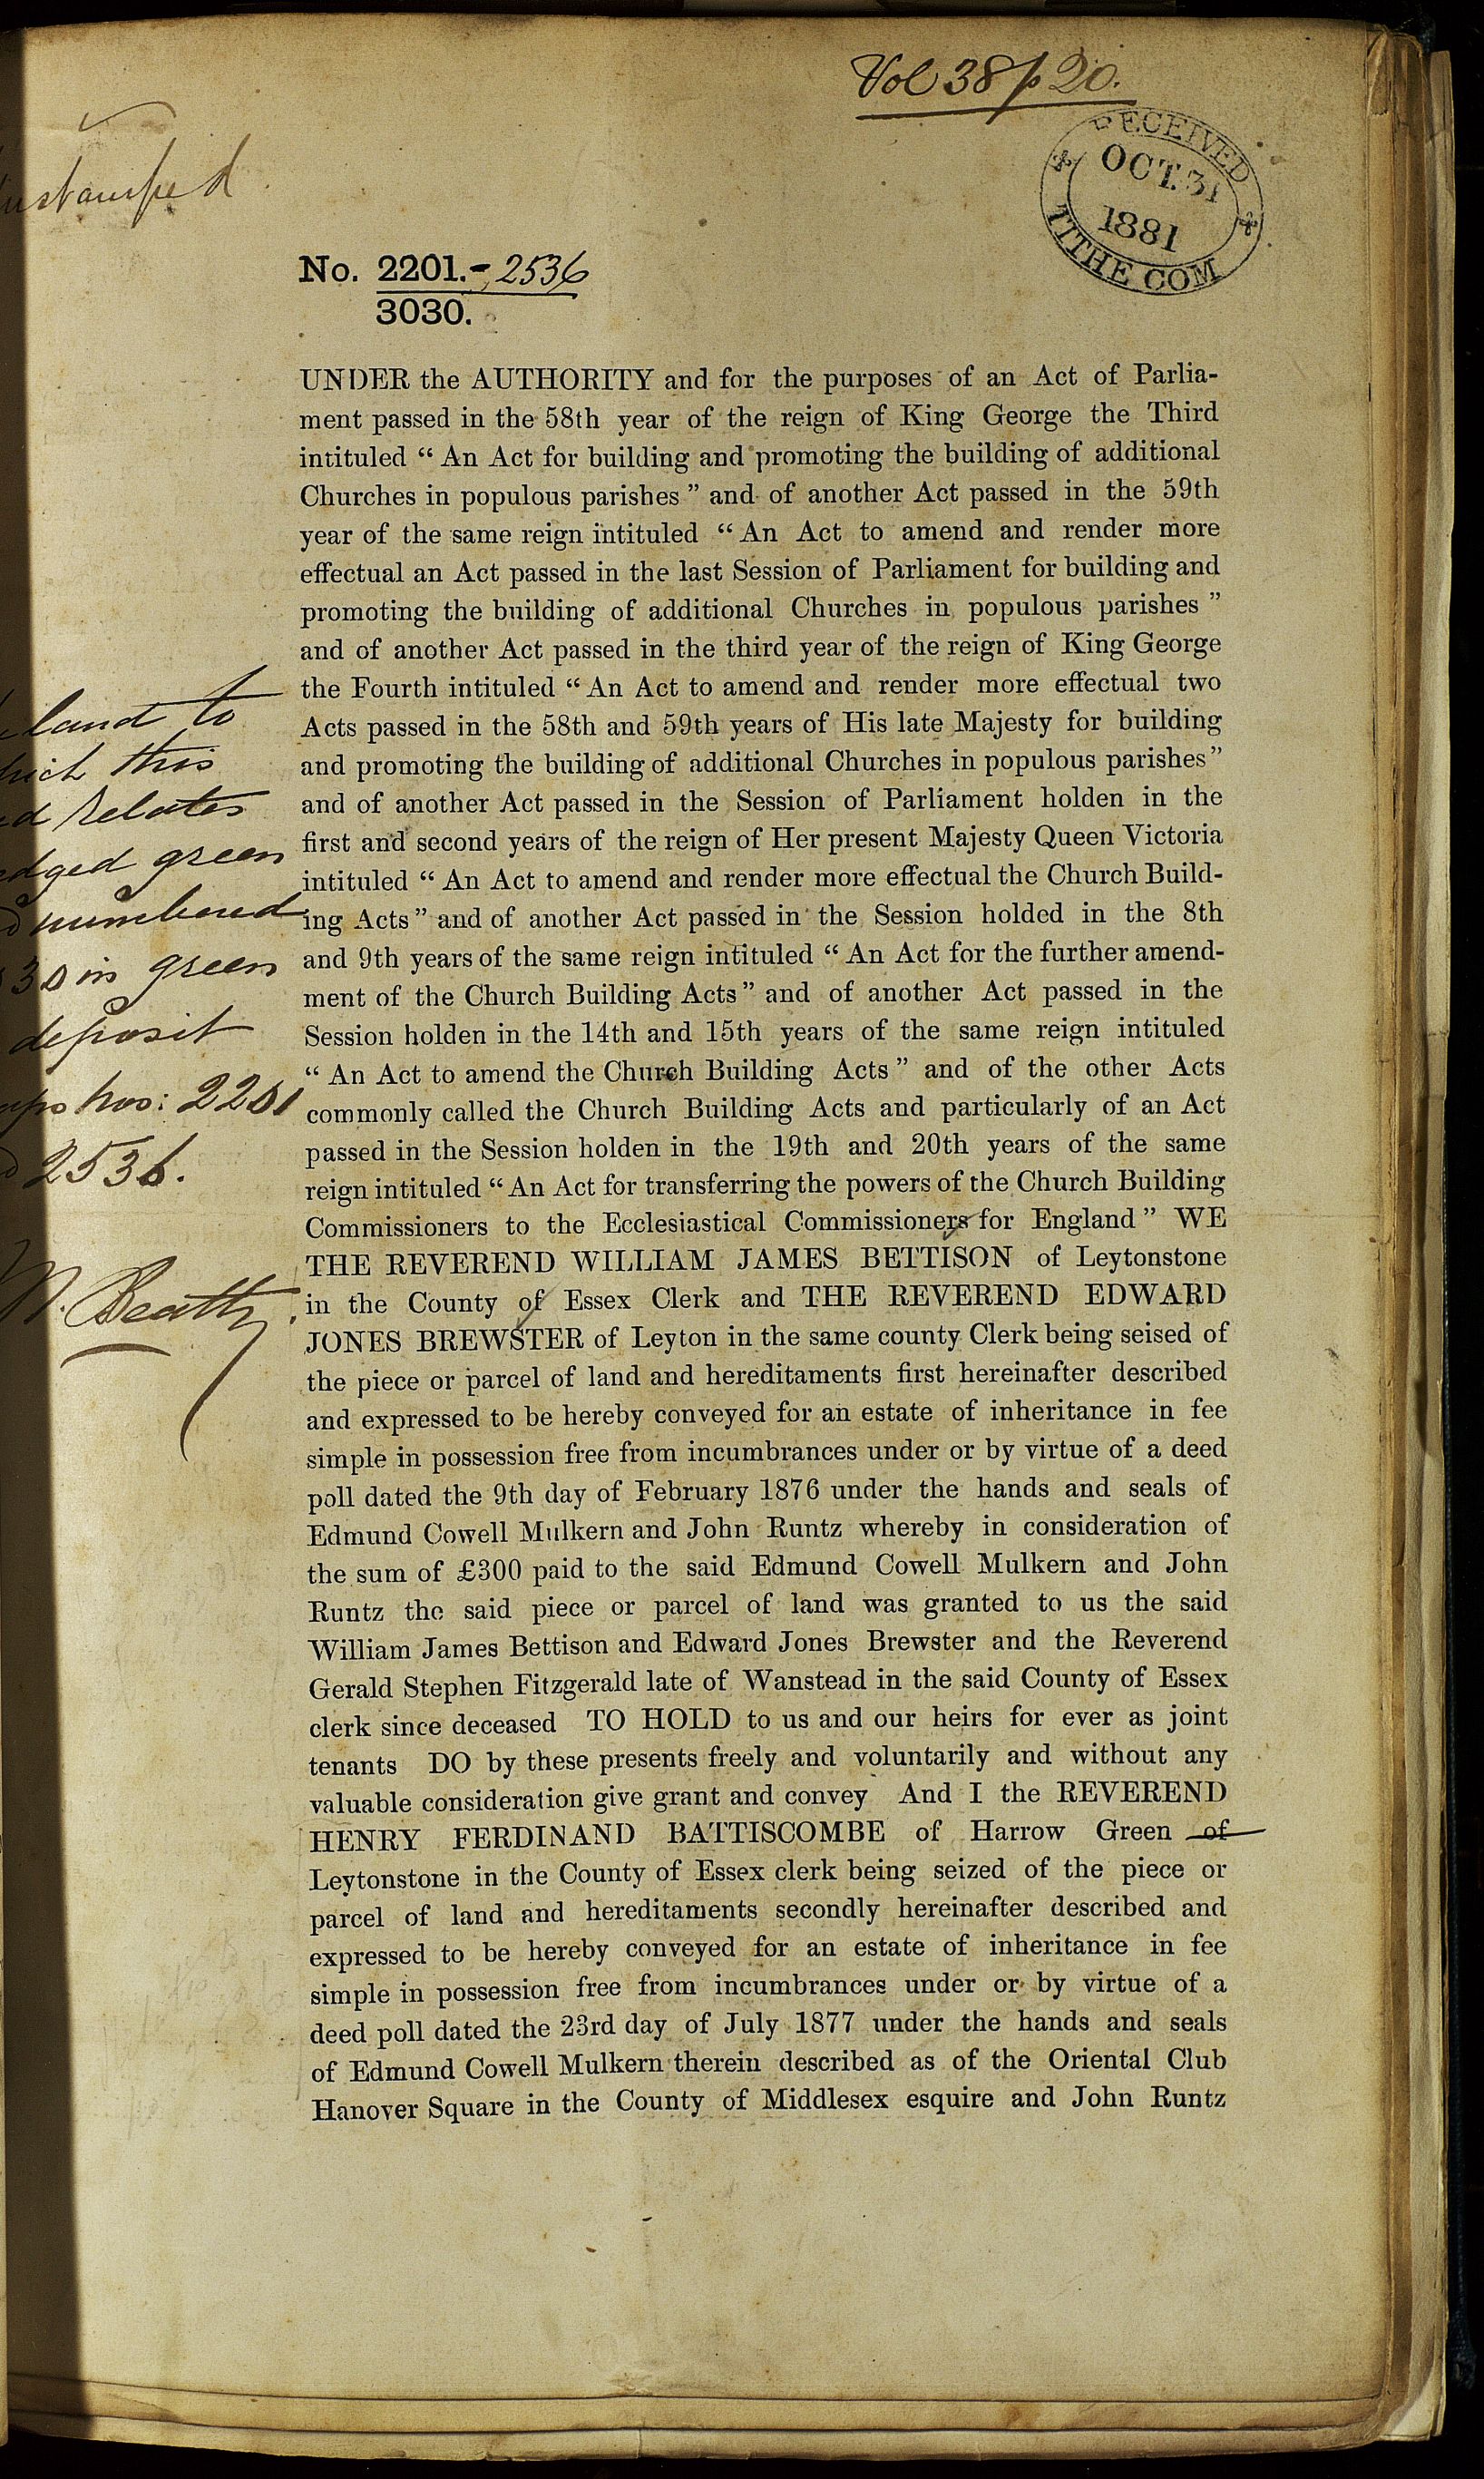 Vol 38 p 20.
RECEIVED
OCT. 31
1881
TITHE COM
No. 2201.-2536
3030.
UNDER the AUTHORITY and for the purposes of an Act of Parlia-
ment passed in the 58th year of the reign of King George the Third
intituled “ An Act for building and promoting the building of additional
Churches in populous parishes ” and of another Act passed in the 59th
year of the same reign intituled “ An Act to amend and render more
effectual an Act passed in the last Session of Parliament for building and
promoting the building of additional Churches in populous parishes ”
and of another Act passed in the third year of the reign of King George
the Fourth intituled “ An Act to amend and render more effectual two
Acts passed in the 58th and 59th years of His late Majesty for building
and promoting the building of additional Churches in populous parishes”
and of another Act passed in the Session of Parliament holden in the
first and second years of the reign of Her present Majesty Queen Victoria
intituled “ An Act to amend and render more effectual the Church Build-
ing Acts” and of another Act passed in the Session holded in the 8th
and 9th years of the same reign intituled “ An Act for the further amend-
ment of the Church Building Acts” and of another Act passed in the
Session holden in the 14th and 15th years of the same reign intituled
“ An Act to amend the Church Building Acts ” and of the other Acts
commonly called the Church Building Acts and particularly of an Act
passed in the Session holden in the 19th and 20th years of the same
reign intituled “ An Act for transferring the powers of the Church Building
Commissioners to the Ecclesiastical Commissioners for England ” WE
THE REVEREND WILLIAM JAMES BETTISON of Leytonstone
in the County of Essex Clerk and THE REVEREND EDWARD
JONES BREWSTER of Leyton in the same county Clerk being seised of
the piece or parcel of land and hereditaments first hereinafter described
and expressed to be hereby conveyed for an estate of inheritance in fee
simple in possession free from incumbrances under or by virtue of a deed
poll dated the 9th day of February 1876 under the hands and seals of
Edmund Cowell Mulkern and John Runtz whereby in consideration of
the sum of £300 paid to the said Edmund Cowell Mulkern and John
Runtz the said piece or parcel of land was granted to us the said
William James Bettison and Edward Jones Brewster and the Reverend
Gerald Stephen Fitzgerald late of Wanstead in the said County of Essex
clerk since deceased TO HOLD to us and our heirs for ever as joint
tenants DO by these presents freely and voluntarily and without any
valuable consideration give grant and convey And I the REVEREND
HENRY FERDINAND BATTISCOMBE of Harrow Green of
Leytonstone in the County of Essex clerk being seized of the piece or
parcel of land and hereditaments secondly hereinafter described and
expressed to be hereby conveyed for an estate of inheritance in fee
simple in possession free from incumbrances under or by virtue of a
deed poll dated the 23rd day of July 1877 under the hands and seals
of Edmund Cowell Mulkern therein described as of the Oriental Club
Hanover Square in the County of Middlesex esquire and John Runtz
land to
this
relates
green
numbered
in green
deposit
nos: 2201
2536.
Beatty